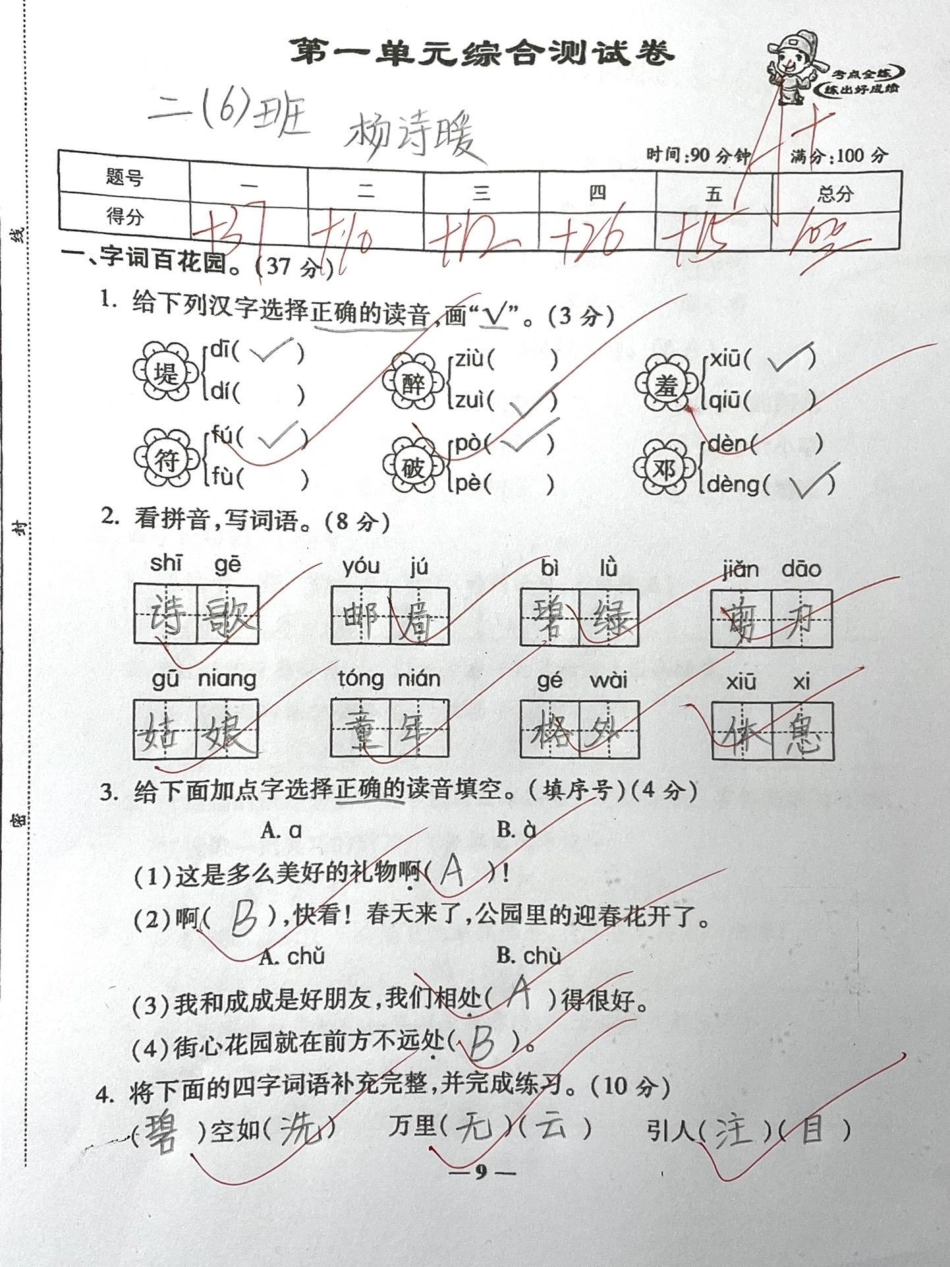 第一单元综合测试卷
考点全练
练出好成绩
二(6)班 杨诗暖
时间:90分钟 满分:100分
题号 一 二 三 四 五 总分
得分 +37 +10 +12 +26 +15 100
一、字词百花园。(37分)
1. 给下列汉字选择正确的读音,画“√”。(3分)
堤 dī( ✓ ) dí( ) 醉 ziù( ) zuì( ✓ ) 羞 xiū( ✓ ) qiū( )
符 fú( ✓ ) fù( ) 破 pò( ✓ ) pè( ) 邓 dèn( ) dèng( ✓ )
2. 看拼音,写词语。(8分)
shī gē yóu jú bì lǜ jiǎn dāo
诗歌 邮局 碧绿 剪刀
gū niang tóng nián gé wài xiū xi
姑娘 童年 格外 休息
3. 给下面加点字选择正确的读音填空。(填序号)(4分)
A. ɑ B. à
(1)这是多么美好的礼物啊( A )!
(2)啊( B ),快看! 春天来了,公园里的迎春花开了。
A. chǔ B. chù
(3)我和成成是好朋友,我们相处( A )得很好。
(4)街心花园就在前方不远处( B )。
4. 将下面的四字词语补充完整,并完成练习。(10分)
( 碧 )空如( 洗 ) 万里( 无 )( 云 ) 引人( 注 )( 目 )
— 9 —
线
封
密